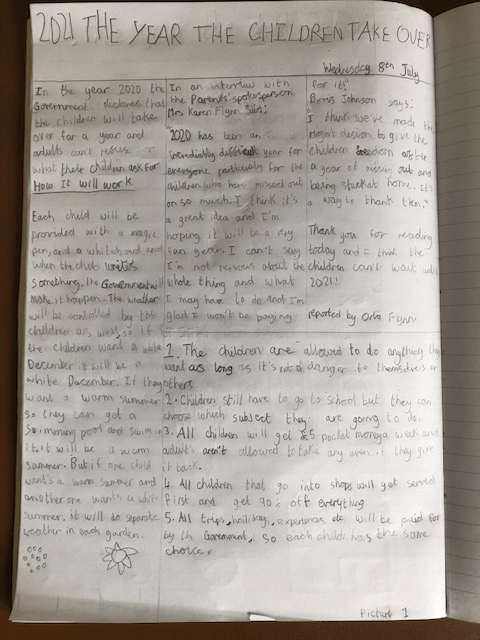 2021, THE YEAR THE CHILDREN TAKE OVER
Wednesday 8th July
In the year 2020 the
Government declares that
the children will take
over for a year and
adults can't refuse
what their children ask for
How It will work
Each child will be
provided with a magic
pen, and a whiteboard and
when the child writes
something, the Government will
make it happen. The weather
will be controlled by the
children as well so if
the children want a white
December it will be a
white December. If they
want a warm summer
so they can get a
swimming pool and swim in
it, it will be a warm
summer. But if one child
want's a warm summer and
another one wants a white
summer, it will do separate
weather in each garden.
In an interview with
the Parents' spokesperson
Mrs Karen Flynn says:
"2020 has been an
incredibly difficult year for
everyone particularly for the
children who have missed out
on so much. I think it's
a great idea and I'm
hoping it will be a very
fun year. I can't say
I'm not nervous about the
whole thing and what
I may have to do and I'm
glad I won't be paying
for it!"
Boris Johnson says:
"I think we've made the
right decision to give the
children freedom after
a year of missing out and
being stuck at home. It's
a way to thank them."
Thank you for reading
today and I think the
children can't wait until
2021!
reported by Orla Flynn
1. The children are allowed to do anything they
want as long as it's not a danger to themselves or
others
2. Children still have to go to school but they can
choose which subject they are going to do.
3. All children will get £5 pocket money a week and
adult's aren't allowed to take any even if they give
it back.
4. All children that go into shops will get served
first and get 90% off everything
5. All trips, holidays, experiences, etc will be paid for
by the Government, so each child has the same
choice.
Picture 1